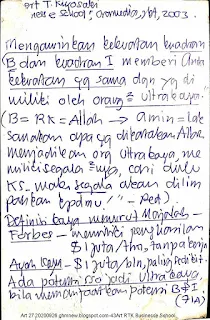 art T. Kiyosaki
Gramedia, jkt, 2003.
Mengawinkan kekuatan kuadran
B dan kuadran I memberi Anda
kekuatan yg sama dgn yg di
miliki oleh orang² ultra kaya."
(B = RK = Allah → amin = lak
sanakan apa yg dikatakan Allah
menjadikan org Ultra kaya, me
miliki segala²nya, cari dulu
KS maka segala akan dilim
pahkan kpdmu" - Red).
Definisi kaya menurut Majalah
Forbes - memiliki penghasilan
$1 juta/thn, tanpa kerja
Ayah Kaya - $1 juta/bln, paling sedikit.
Ada potensi sso jadi Ultra kaya,
bila memanfaatkan potensi B + I.
(714)
Art 27 20200926 gbmnew.blogspot.com-43Art RTK Businesde School